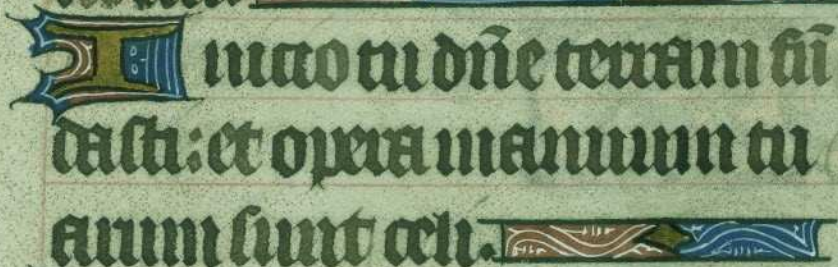 Inicio tu dñe terram fũ
dasti: et opera manuum tu
arum sunt celi.